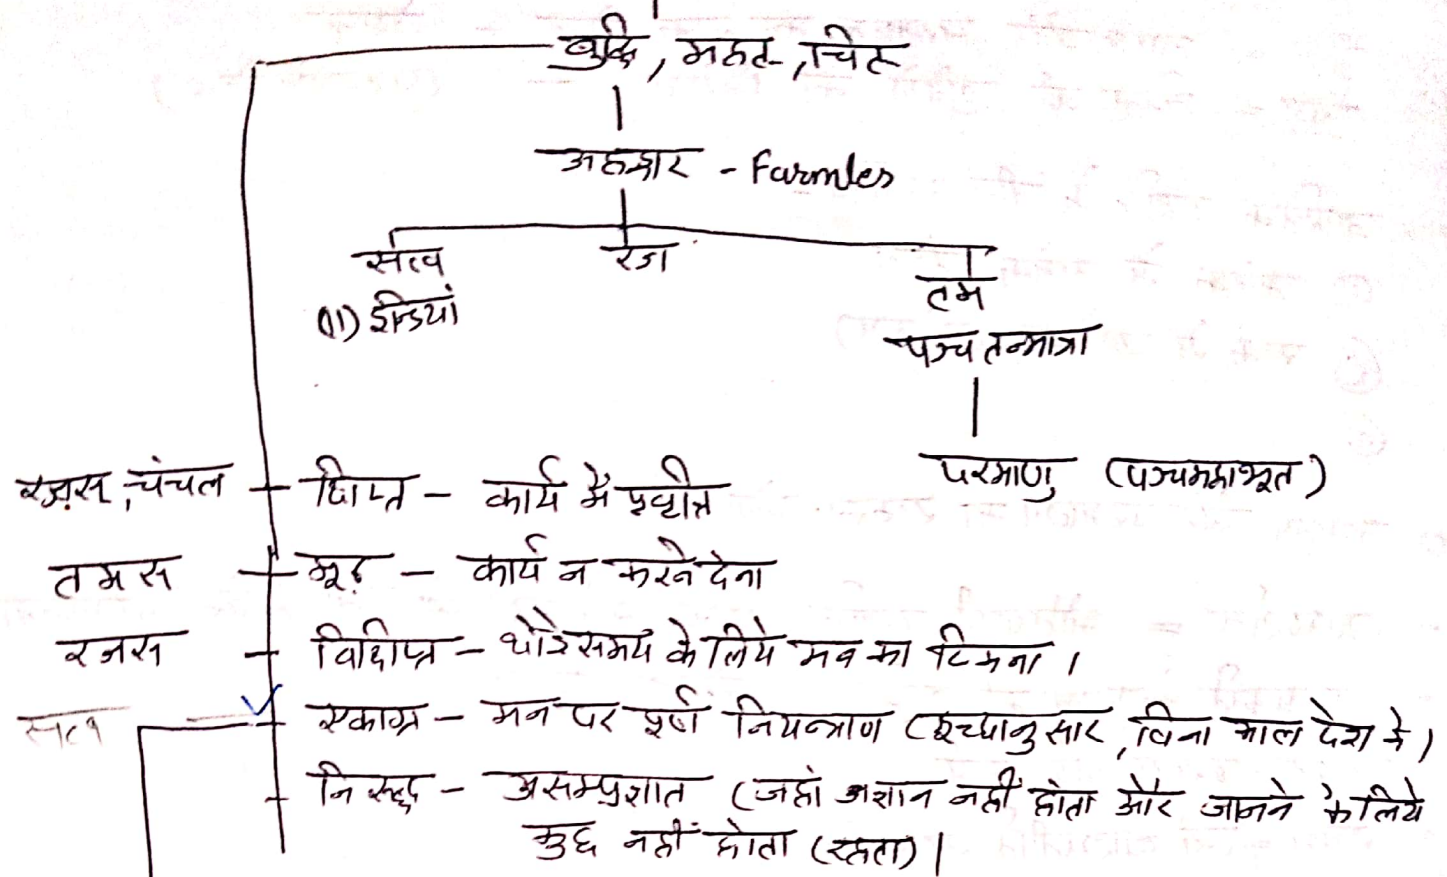 बुद्धि, महत, चित्त
अहङ्कार - Farmles
सत्व रज
तम
(11) इन्द्रियां
पञ्च तन्मात्रा
परमाणु (पञ्चमहाभूत)
रजस, चंचल - क्षिप्त - कार्य में प्रवृत्ति
तमस - मूढ़ - कार्य न करने देना
रजस - विक्षिप्त - थोरे समय के लिये मन का टिकना ।
सत्व एकाग्र - मन पर पूर्ण नियन्त्राण (इच्छानुसार, बिना काल देश के)
निरुद्ध - असम्प्रज्ञात (जहां अज्ञान नहीं होता और जानने के लिये
कुछ नहीं होता (रहता) |